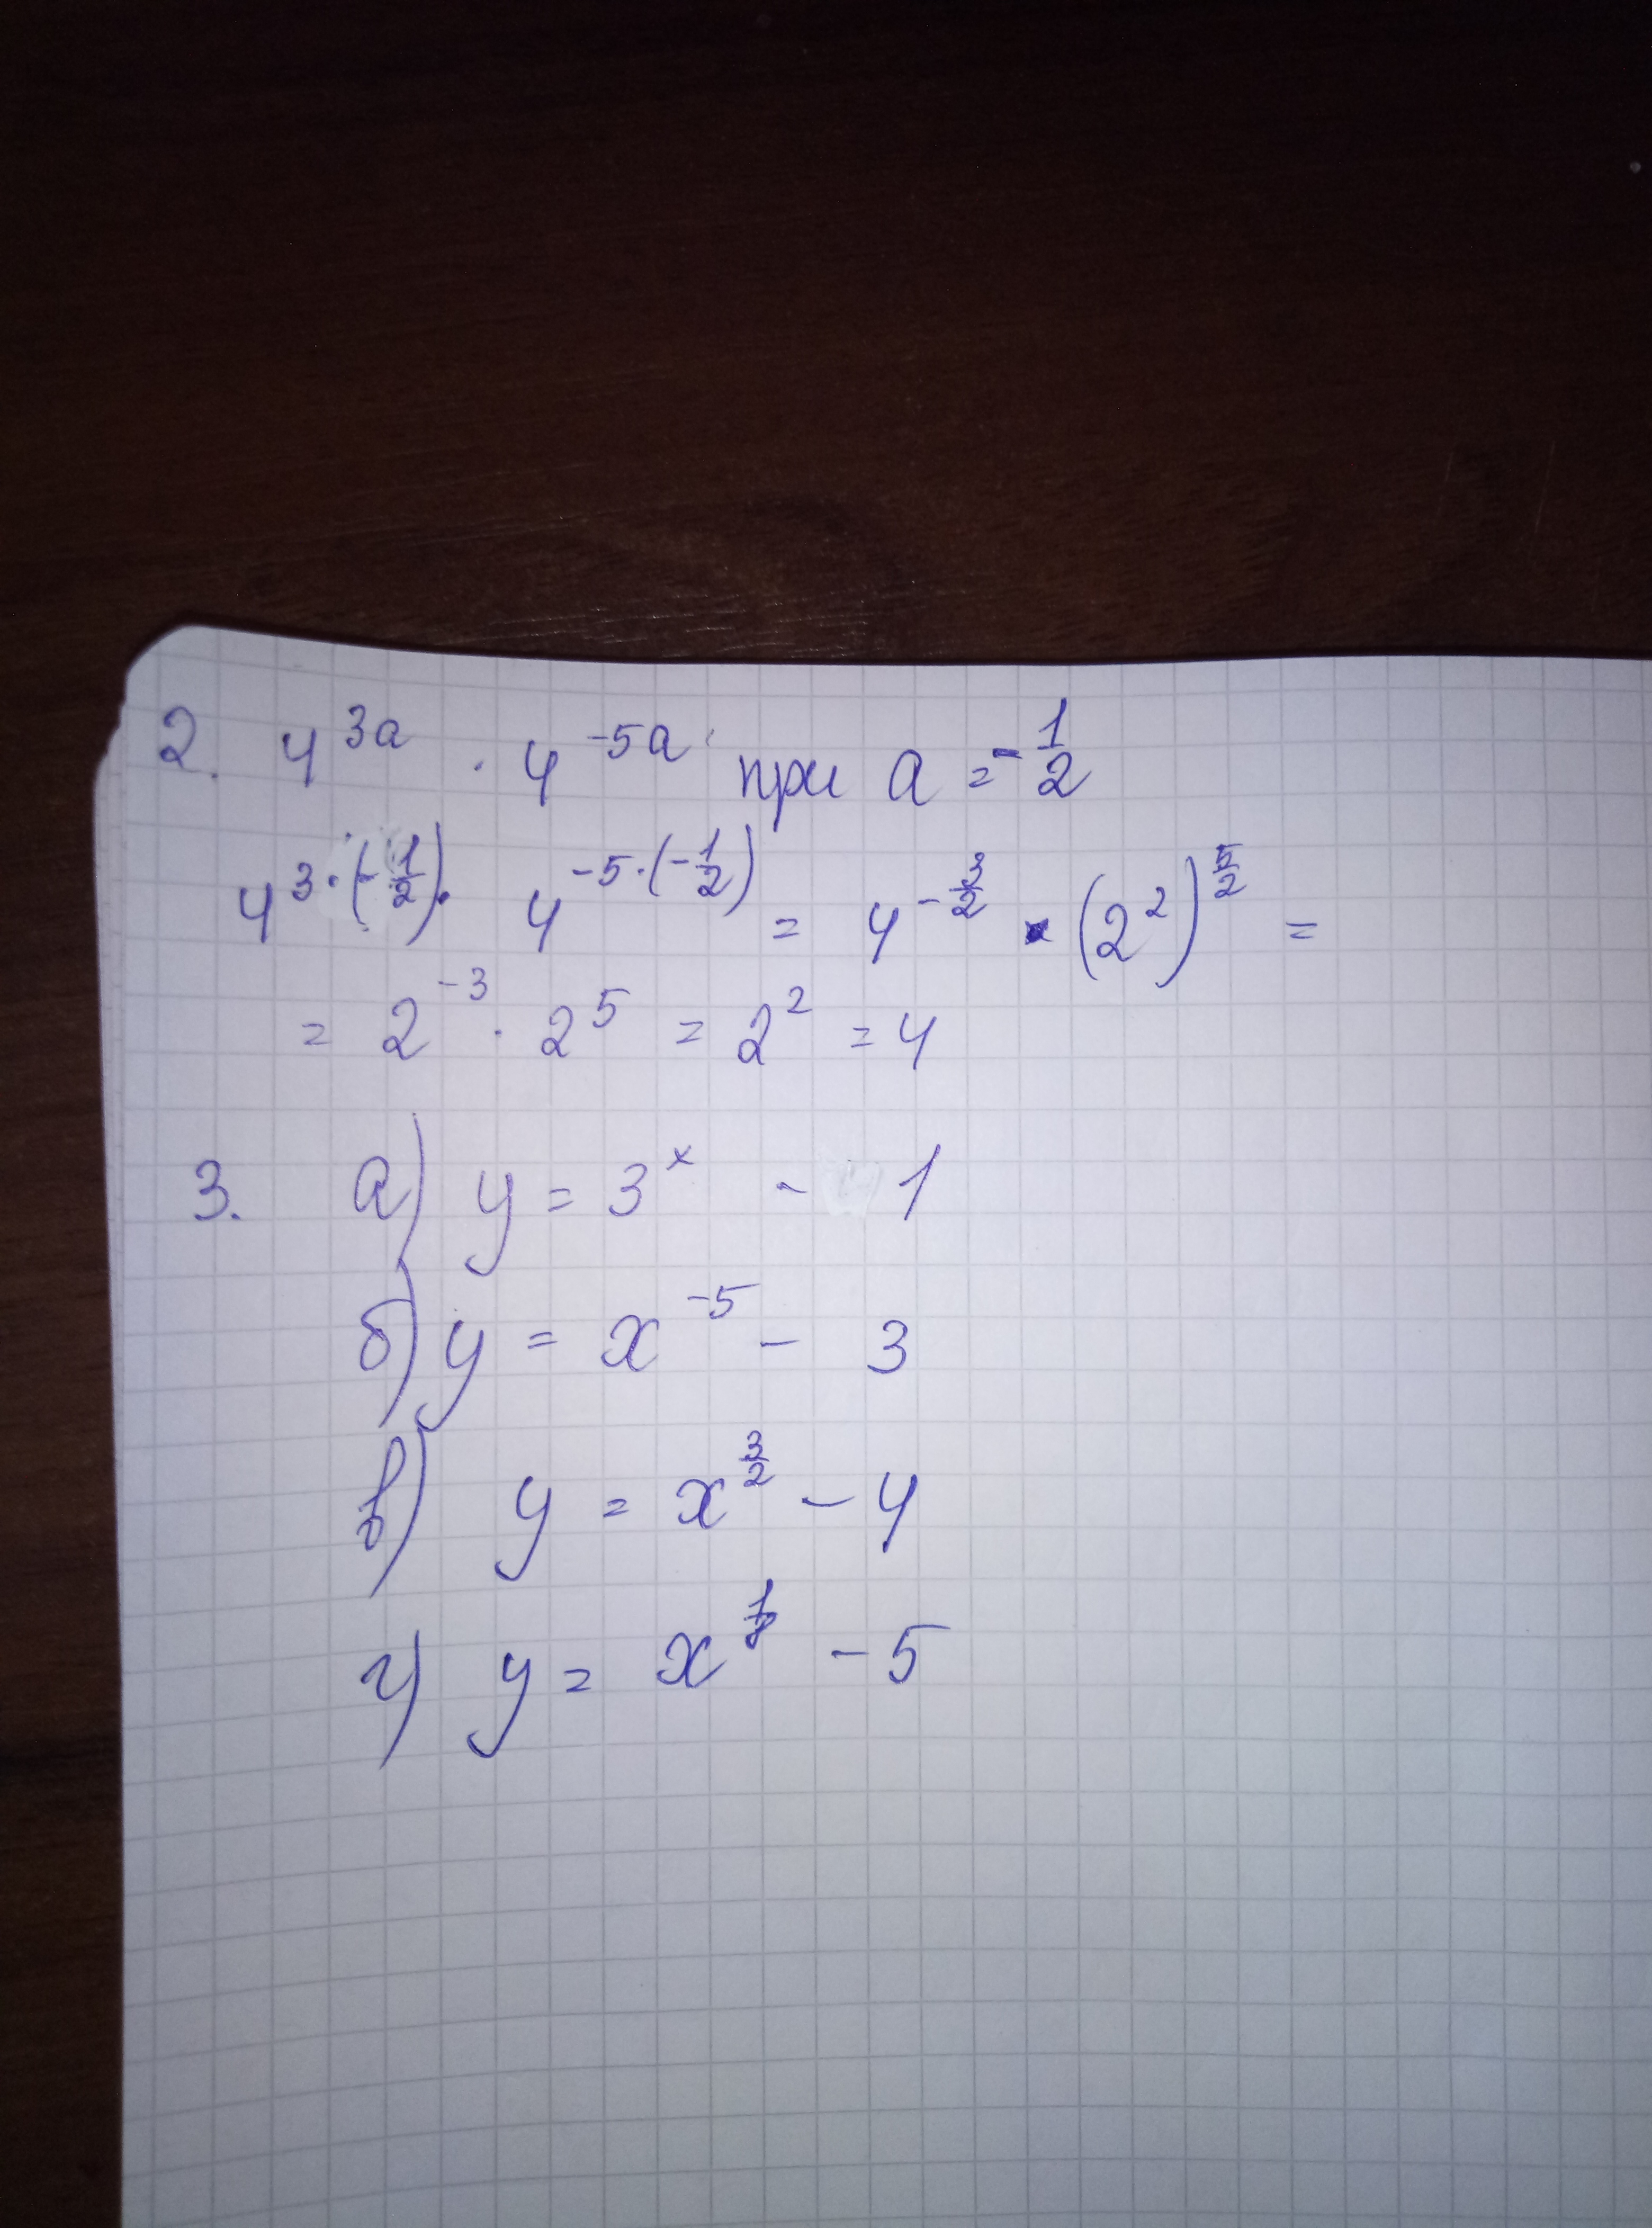 2. 4^{3a} · 4^{-5a} при a = -\frac{1}{2}
4^{3·(-\frac{1}{2})} · 4^{-5·(-\frac{1}{2})} = 4^{-\frac{3}{2}} · (2^2)^{\frac{5}{2}} =
= 2^{-3} · 2^5 = 2^2 = 4
3. а) y = 3^x - 1
б) y = x^{-5} - 3
в) y = x^{\frac{3}{2}} - 4
г) y = x - 5